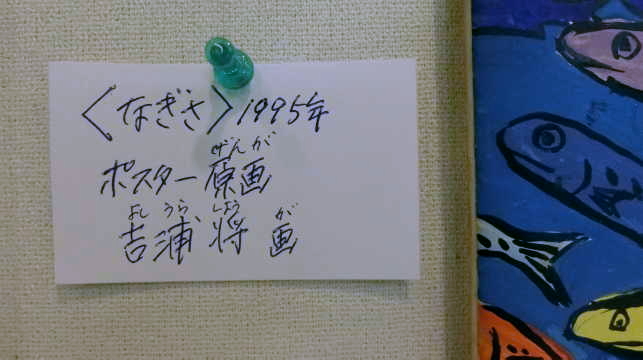 〈なぎさ〉1995年
げんが
ポスター原画
よし うら しょう が
吉浦 将 画